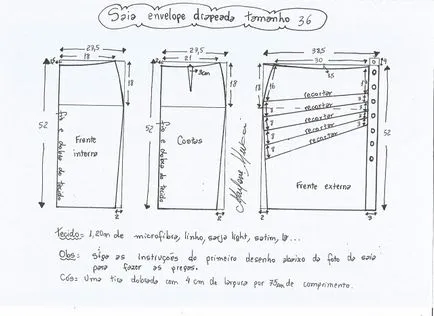 Saia envelope drapeada tamanho 36
27,5
18
18
52
Fio e dobra do tecido
Frente
interna
2
27,5
21
3cm
18
52
Fio e dobra do tecido
Costas
2
Marlene Mukai
38,5
30
4
1,5
18
16
recortar
recortar
recortar
recortar
recortar
3
3
3
3
8
8
8
52
Frente externa
2
3
Tecido: 1,20m de microfibra, linho, sarja light, cetim, lã...
Obs: Siga as instruções do primeiro desenho abaixo da foto da saia
para fazer as pregas.
Cós: Uma tira dobrada com 4 cm de largura por 75cm de comprimento.